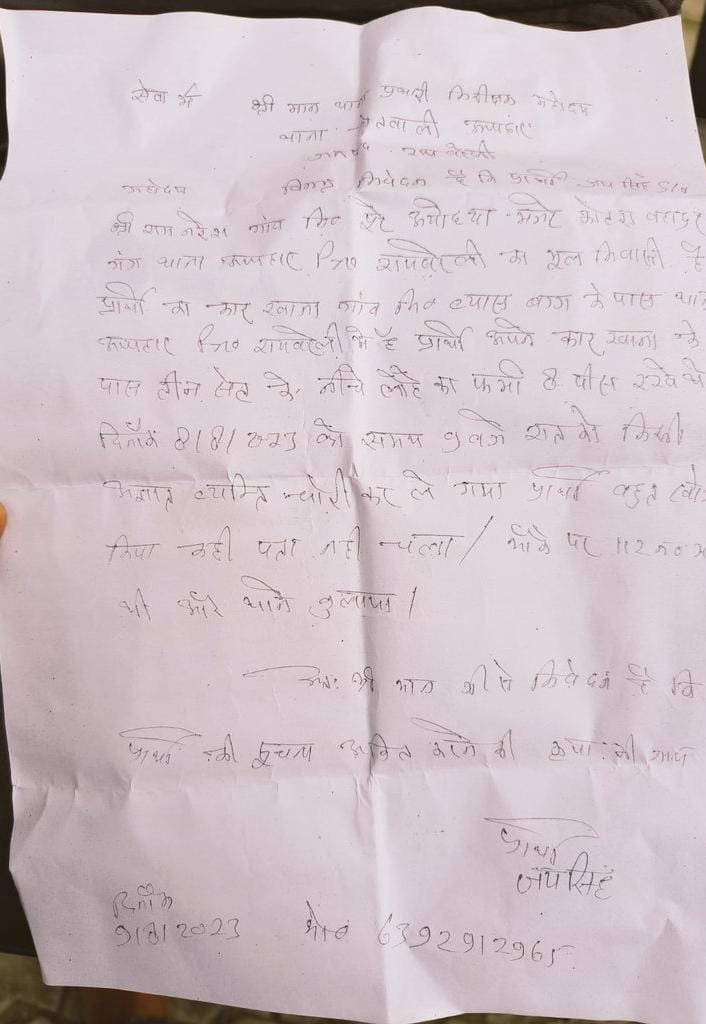 सेवा में श्री मान थाना प्रभारी निरीक्षक महोदय
थाना कोतवाली ऊंचाहार
जनपद रायबरेली
महोदय विनम्र निवेदन है कि प्रार्थी जय सिंह S/o
श्री राम नरेश गांव निव पूरे अयोध्या मजरे कोटरा बहादुर
गंज थाना ऊंचाहार जि० रायबरेली का मूल निवासी है
प्रार्थी का कारखाना गांव निव व्यास बाग के पास थाना
ऊंचाहार जि० रायबरेली में है प्रार्थी अपने कारखाना के
पास टीन सेट के नीचे लोहे का फर्मा 8 पीस रखे थे
दिनाँक 8/8/2023 को समय 9 बजे रात को किसी
अज्ञात व्यक्ति चोरी कर ले गया प्रार्थी बहुत
किया कही पता नही चला / मौके पर 112 न०
थी और थाने बुलाया /
अतः श्री मान जी से निवेदन है कि
प्रार्थी की सूचना अंकित करने की कृपा की जाय
प्रार्थी
जय सिंह
दिनाँक
9/8/2023 मो०न० 6392912965